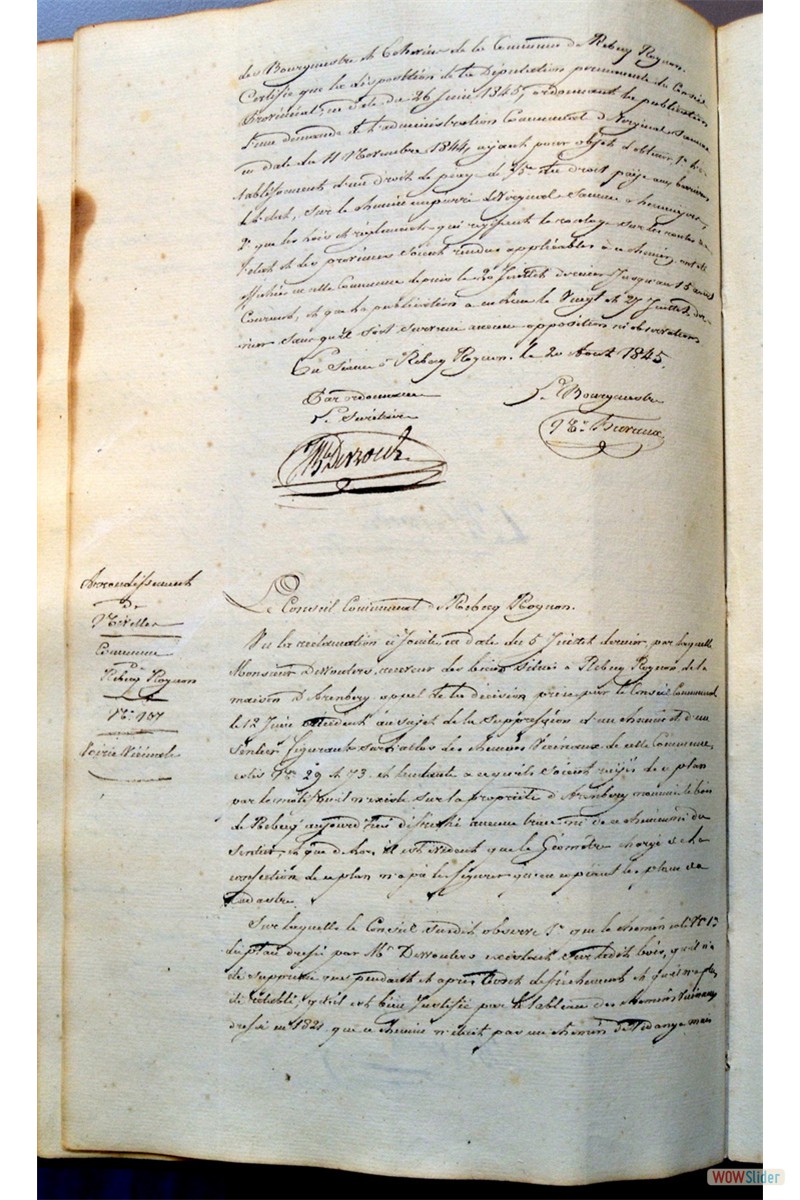 des Bourgmestre et Echevins de la Commune de Rebecq Rognon.
Certifie que la disposition de la Députation permanente du Conseil
Provincial, en date du 26 Juin 1845, ordonnant la publication
d'une demande de l'administration Communale d'
en date du 11 Novembre 1844, ayant pour objet d'obtenir 1° l'é-
tablissement d'un droit de péage de du droit payé aux barrières
de l'état, sur le chemin empierré de à hennuyeres,
2° que les lois et réglements qui régissent le roulage sur les routes de
l'état et des provinces soient rendus applicables à ce chemin, ont été
affichée en cette Commune depuis le 20 Juillet dernier Jusqu'au 15 août
Courant, et que la publication a eu lieu le Vingt et 27 Juillet der-
nier sans qu'il soit survenu aucune opposition ni observation
En Séance à Rebecq Rognon, le 20 Août 1845.
Par ordonnance
Le Bourgmestre
Le Secrétaire
Arrondissement
de
Nivelles
Commune
de
Rebecq Rognon
N° 107
Voirie Vicinale
Le Conseil Communal de Rebecq Rognon.
Vu la réclamation ci jointe, en date du 5 Juillet dernier, par laquelle
Monsieur receveur des biens situés à Rebecq Rognon de la
maison d'Arenberg appel de la décision prise par le Conseil Communal
le 12 Juin au sujet de la suppression d'un chemin et d'un
sentier figurants sur l'atlas des chemins Vicinaux de cette Commune,
cotés Nos 29 et 73 et tendante a ce qu'ils soient rayés de ce plan
par le motif qu'il n'existe sur la propriété d'Arenberg nommée le bois
de Rebecq aujourd'hui défriché aucune trace ni de ce chemin ni du
sentier, et que dèslors, il est évident que le Géomètre chargé de la
confection de ce plan n'a pû le figurer qu'en copiant le plan du
Cadastre.
Sur laquelle le Conseil susdit observe 1° que le chemin coté N° 13
du plan dressé par Mr existoit sur ledit bois, qu'il n'a
été supprimé que pendant et après ledit défrichement et qu'il n'a plus
été rétabli, qu'il est bien justifié par le tableau des chemins Vicinaux
dressé en 1821 que ce chemin n'étoit pas un chemin de Vidange mais
WOWSlider